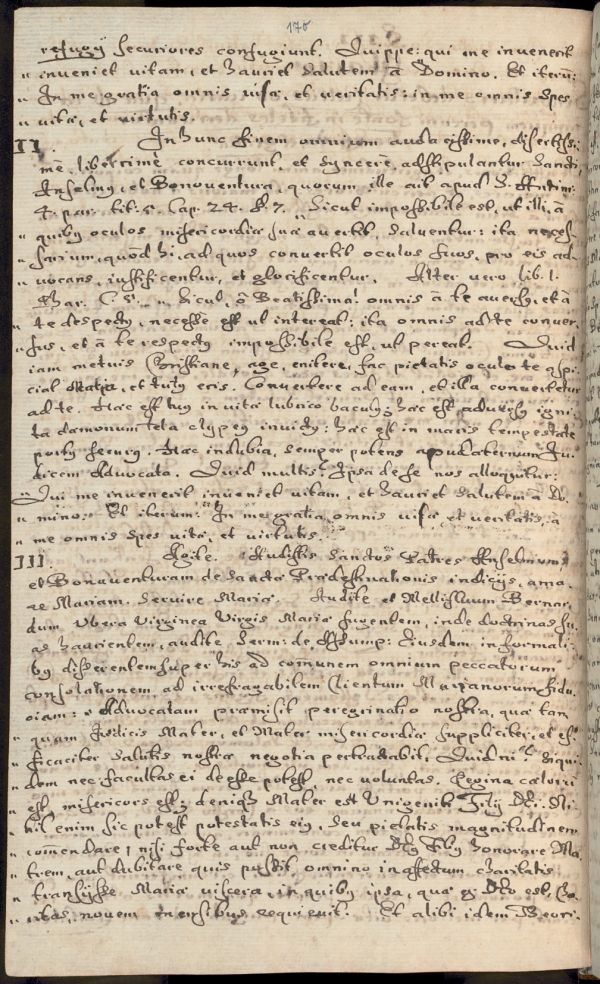 176
refugÿ securiores confugiunt. Quippe: qui me invenerit
" inveniet vitam, et hauriet salutem à Domino. Et iterũ:
" In me gratia omnis viæ, et veritatis: in me omnis spes
" vitæ, et virtutis.
II. In hunc finem omnium avidissime, disertissi-
mè, liberrimè concurrunt, et syncerè, adstipulantur Sancti
Anselmus, et Bonaventura, quorum ille ait apud S. Antnin:
4. par. tit: Cap. 24. §. 7. " Sicut impossibile est, ut illi, à
" quibus oculos misericordiæ suæ avertit, salventur: ita neces-
" sarium, quòd hi, ad quos convertit oculos suos, pro eis ad-
" vocans, justificentur, et glorificentur. Alter vero lib. 1.
Phar. C. 5. " Sicut, ô Beatissima! omnis à te aversus, et à
" te despectus, necesse est ut intereat: ita omnis ad te conver-
" sus, et à te respectus impossibile est, ut pereat. Quid
iam metuis Christiane, age, enitere, fac pietatis oculo te aspi-
ciat Maria, et tutus eris. Convertere ad eam, et illa convertetur
ad te. Hæc est tuus in vita lubrico baculus; hæc est adversus igni-
ta dæmonum tela clypeus invictus: hæc est in maris tempestate
portus securus. Hæc indubia, semper potens apud æternum Ju-
dicem Advocata. Quid multis? Ipsa de se nos alloquitur:
" Qui me invenerit inveniet vitam, et hauriet salutem à Do-
" mino: Et iterum: In me gratia omnis viæ, et veritatis, à
" me omnis spes vitæ, et virtutis.
III. Agite. Audistis Sanctos Patres Anselmum,
et Bonaventuram de sanctæ Prædestinationis indicÿs, ama-
re Mariam, servire Mariæ. Audite et Mellifluum Bernar-
dum Ubera Virginea Virgis Mariæ sugentem, inde doctrinas su-
as haurientem, audite Serm: de Assump: Eiusdem in formali-
bus disserentem super his ad comunem omnium peccatorum
consolationem, ad irrefragabilem Clientum Marianorum fidu-
ciam: " Advocatam præmisit peregrinatio nostra, quæ tam-
" quam Judicis Mater, et Mater misericordiæ suppliciter, et ef-
" ficaciter salutis nostræ negotia pertractabit. Quid ni? siqui-
" dem nec facultas ei deesse potest nec voluntas. Regina cælorũ
" est, misericors est; denique Mater est Unigeniti Filÿ Dei. Ni-
" hil enim sic potest potestatis eius, seu pietatis magnitudinem
" comẽndare, nisi forte aut non creditur Dei Filÿ honorare Ma-
" trem, aut dubitare quis possit omnino in affectum charitatis
" transÿsse Mariæ viscera, in quibus ipsa, quæ ex Deo est, Cha-
" ritas, novem mensibus requievit. Et alibi idem